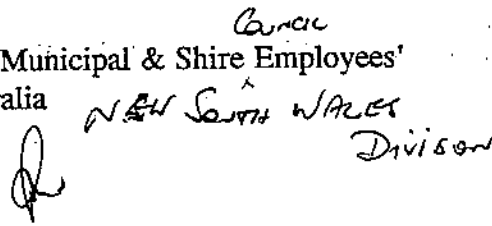 Council
Municipal & Shire Employees'
alia NEW SOUTH WALES
Division